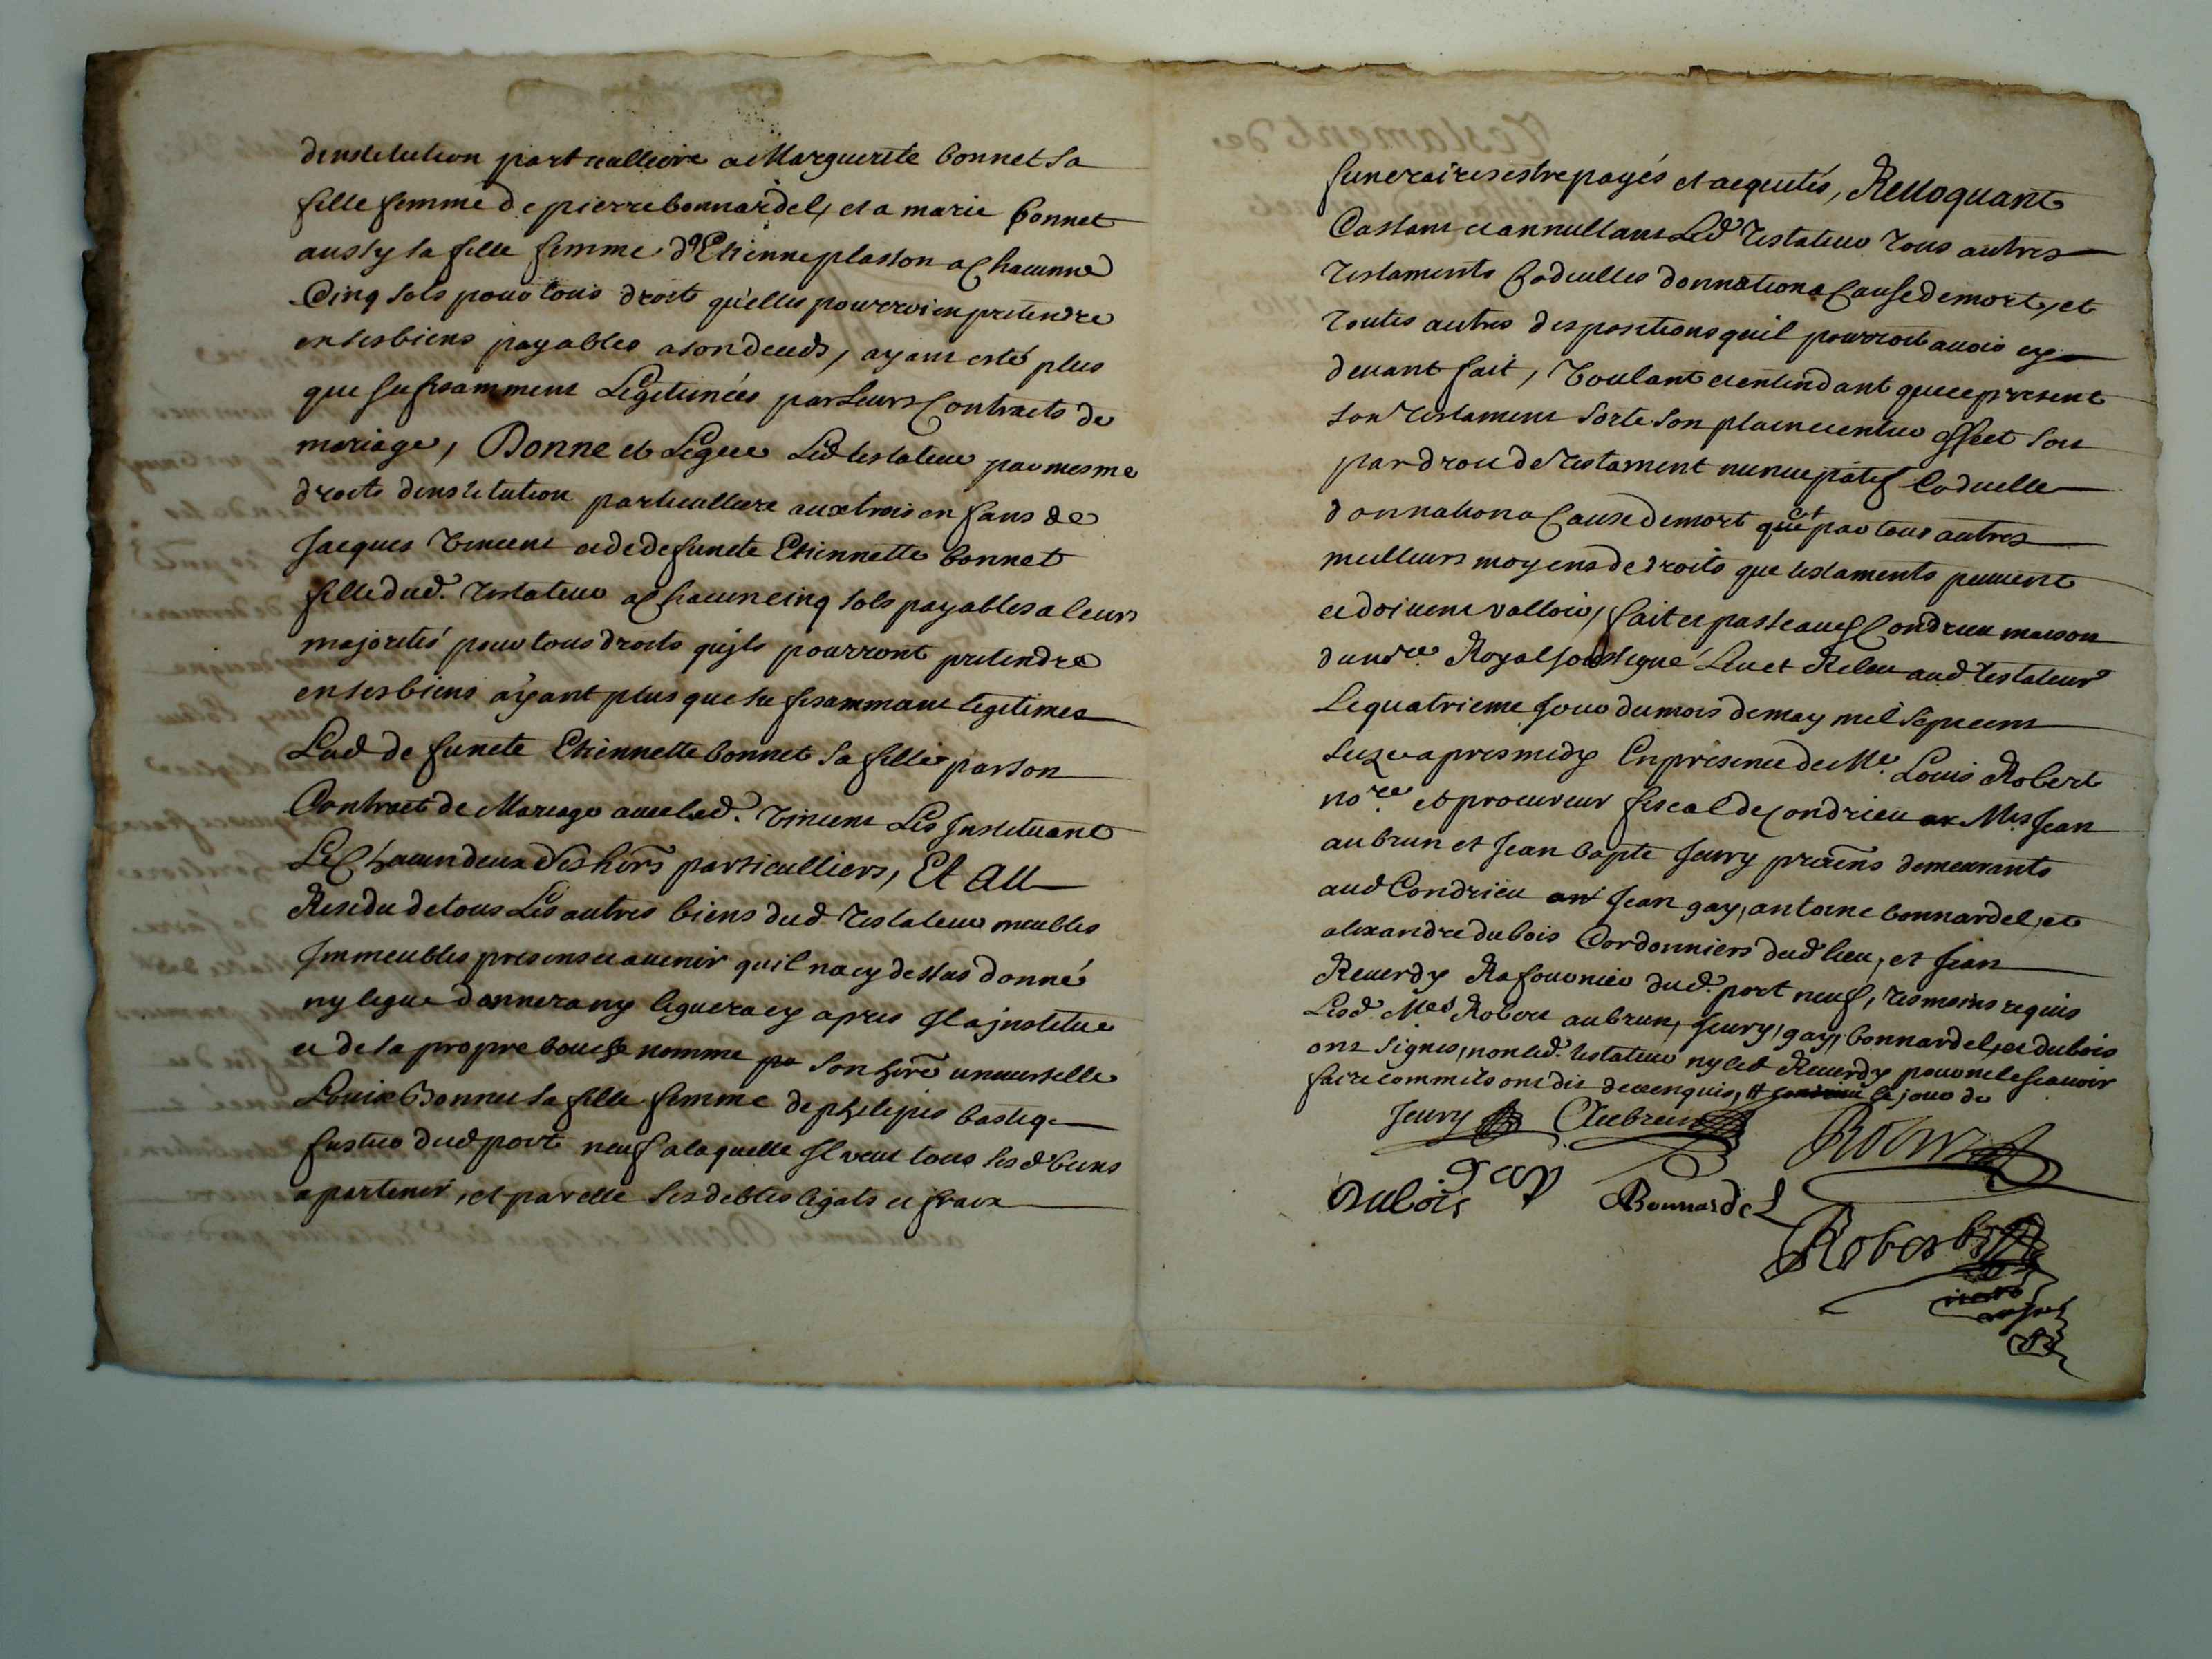 dinstitution particulliere a Marguerite bonnet sa
fille femme de pierre bonnardel, et a marie bonnet
aussy sa fille femme d'Etienne plasson a chacunne
Cinq sols pour tous droits quelles pourroien pretendre
en ses biens payables a son deceds, ayant esté plus
que sufisamment Legitimées par Leurs Contracts de
mariage, Donne et Legue Led testateur par mesme
droits dinstitution particulliere aux trois enfans de
Jacques Vincent et de defuncte Etiennette bonnet
fille dud. testateur a chacun cinq sols payables a leurs
majorités pour tous droits quils pourront pretendre
en ses biens ayant plus que sufisammant legitimes
Lad defuncte Etiennette bonnet sa fille par son
Contract de Mariage avec led. Vincent Les Instituant
Le Chacun deux Ses hers particulliers, Et Au
Residu de tous Les autres biens dud testateur meubles
Immeubles presens et avenir quil na cy dessus donné
ny legue donnera ny leguera cy apres Il a institue
et de sa propre bouche nomme pr son here universelle
Louise Bonnet sa fille femme de philipes bastiq
fustier dud port neuf a laquelle Il veut tous sesd biens
apartenir, et par elle ses debtes legats et fraix
funeraires estre payés et acquités, Revoquant
Cassant et annullant Led testateur tous autres
testaments Codicilles donnation a Cause de mort, et
toutes autres dispositions quil pourroit avoir cy
devant fait, Voulant et entendant que ce present
son testament sorte son plain et entier effect soit
par droit de testament nuncupatif Codicille
donnation a Cause de mort que et par tous autres
meilleurs moyens de droits que testaments peuvent
et doivent valloir, fait et passe aud Condrieu maison
du nore Royal soussigné Leu et Releu aud testateur
Le quatrieme Jour du mois de may mil sept cent
seize apres midy En presence de Me. Louis Robert
nore et procureur fiscal de Condrieu Mes Jean
aubrun et Jean bapte Jeury pratiens demeurants
aud Condrieu Jean gay, antoine bonnardel, et
alexandre dubois Cordonniers dud lieu, et Jean
Reverdy dud. port neuf, tesmoins requis
Lesd. Mes Robert aubrun, Jeury, gay, bonnardel, et dubois
ont signes, non led. testateur ny led Reverdy pour ne le scavoir
faire comme ils ont dit de ce enquis, le jour de
Jeury Aubrun Robert
Dubois gay Bonnardel
Robert